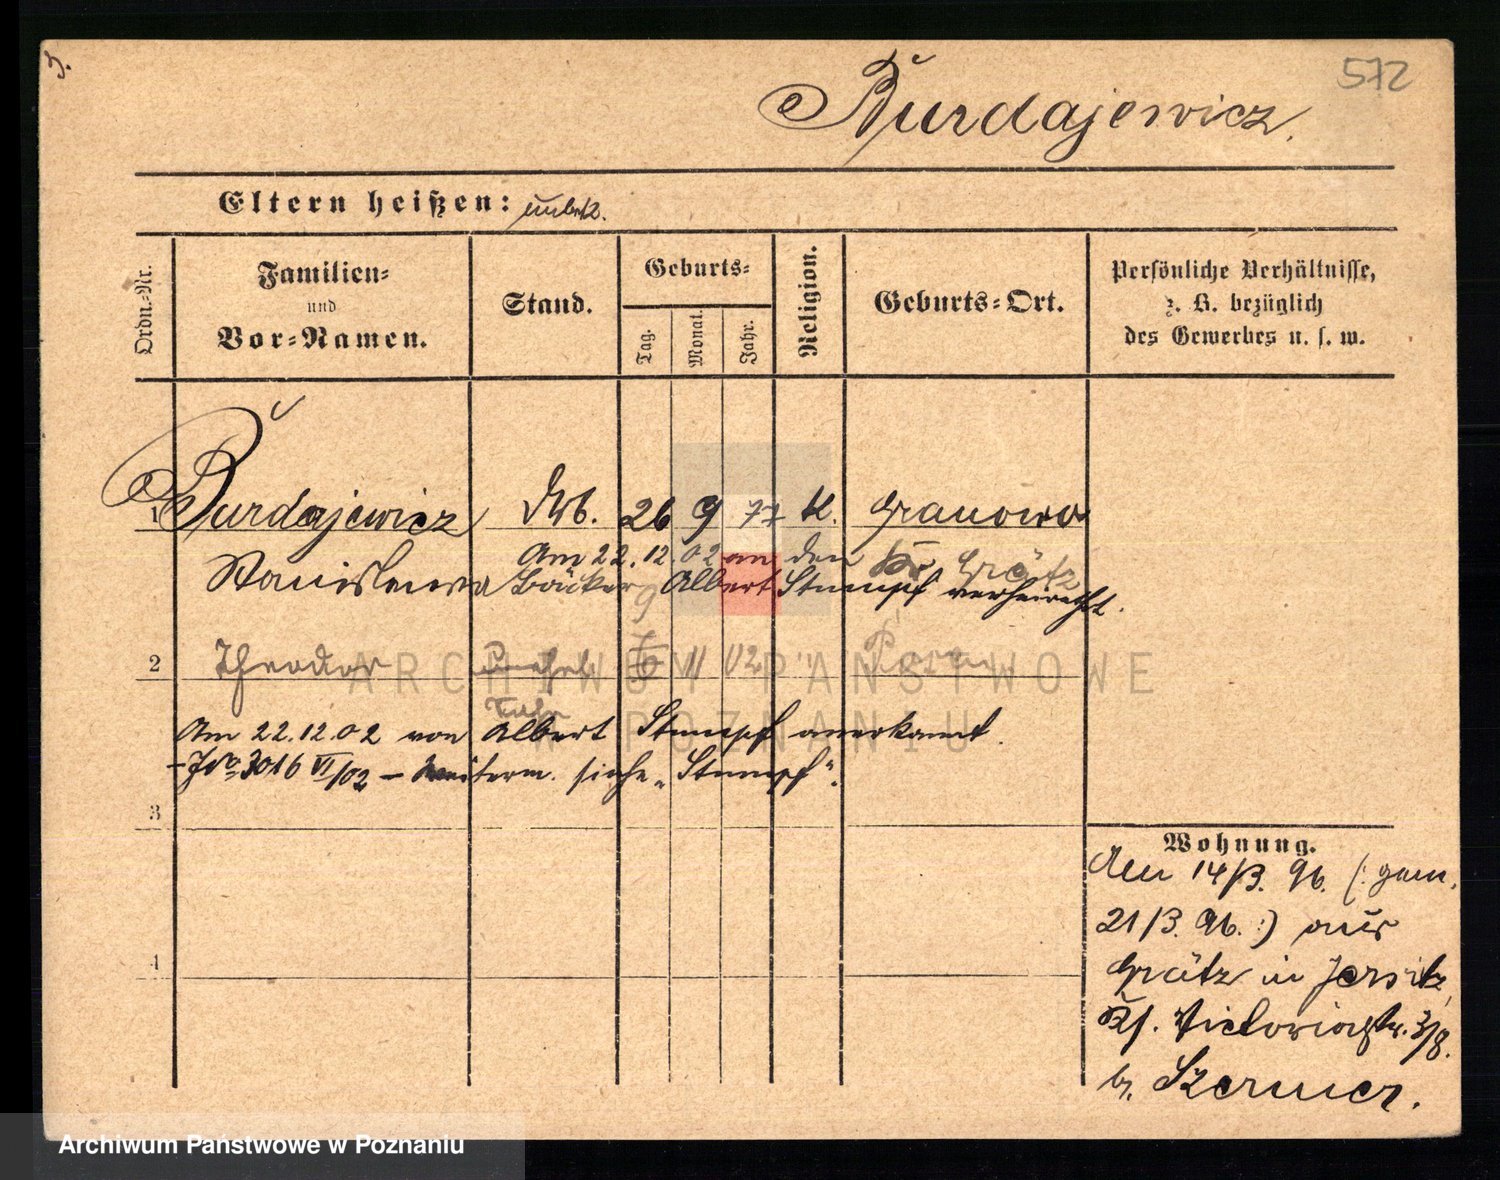 572
Burdajewicz.
Eltern heißen: unbek.
Ordn.-Nr.
Familien- und Vor-Namen.
Stand.
Geburts-
Tag.
Monat.
Jahr.
Religion.
Geburts-Ort.
Persönliche Verhältnisse,
z. B. bezüglich
des Gewerbes u. s. w.
1 Burdajewicz Arb. 26 9 77 k. Granowo
Am 22.12.02 an den Kr Grätz
Stanislawa Bäcker Albert Stumpf verheirathet.
2 Theodor unehel 11 02 Posen
Am 22.12.02 von Albert Stumpf anerkannt.
- JNo 3016 VI/02 - siehe „Stumpf“.
3
4
Wohnung.
Am 14/3. 96. (: gem.
21/3. 96. :) aus
Grätz in Jersitz,
Victoriastr. 3/8.
b. Szermer.
ARCHIWUM PAŃSTWOWE
W POZNANIU
Archiwum Państwowe w Poznaniu